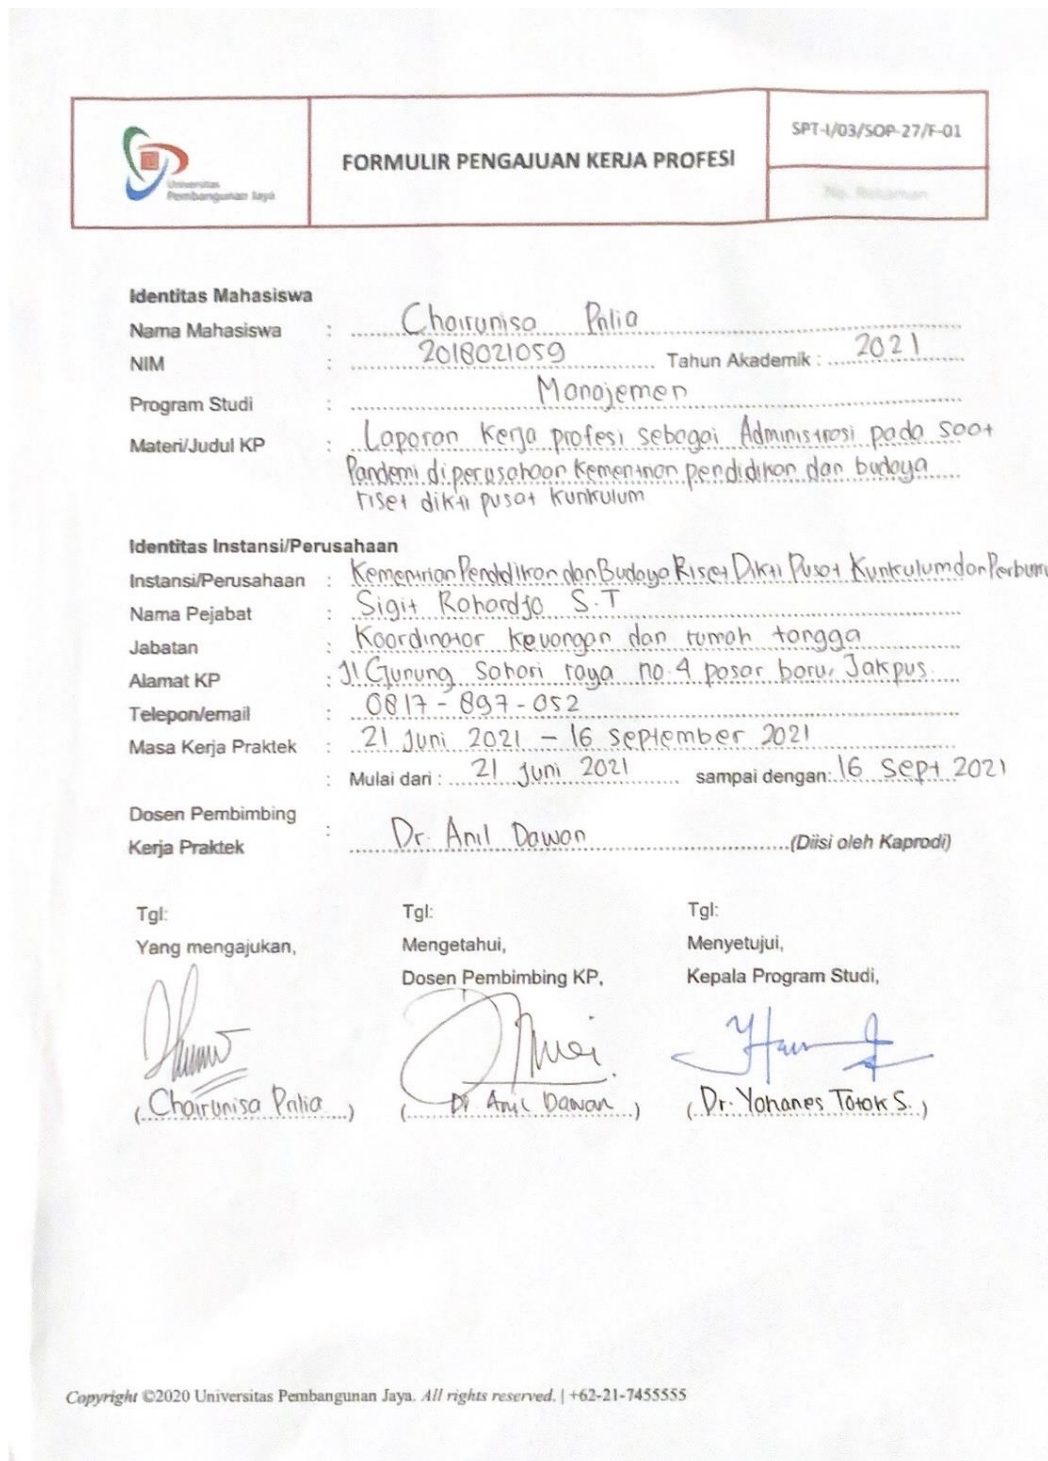 Universitas
Pembangunan Jaya
FORMULIR PENGAJUAN KERJA PROFESI
SPT-I/03/SOP-27/F-01
No. Rekaman
Identitas Mahasiswa
Nama Mahasiswa : Chairunisa Prilia
NIM : 2018021059 Tahun Akademik : 2021
Program Studi : Manajemen
Materi/Judul KP : Laporan Kerja profesi sebagai Administrasi pada saat
Pandemi di perusahaan Kementrian pendidikan dan budaya
riset dikti pusat kurikulum
Identitas Instansi/Perusahaan
Instansi/Perusahaan : Kementrian Pendidikan dan Budaya Riset Dikti Pusat Kurikulum dan Perbuku
Nama Pejabat : Sigit Rahardjo S.T
Jabatan : Koordinator keuangan dan rumah tangga
Alamat KP : Jl Gunung Sahari raya no.4 pasar baru, Jakpus.
Telepon/email : 0817-897-052
Masa Kerja Praktek : 21 Juni 2021 – 16 September 2021
: Mulai dari : 21 Juni 2021 sampai dengan: 16 Sept 2021
Dosen Pembimbing
Kerja Praktek : Dr. Anil Dawan (Diisi oleh Kaprodi)
Tgl: Tgl: Tgl:
Yang mengajukan, Mengetahui, Menyetujui,
Dosen Pembimbing KP, Kepala Program Studi,
(Chairunisa Prilia) (Dr Anil Dawan) (Dr. Yohanes Totok S.)
Copyright ©2020 Universitas Pembangunan Jaya. All rights reserved. | +62-21-7455555